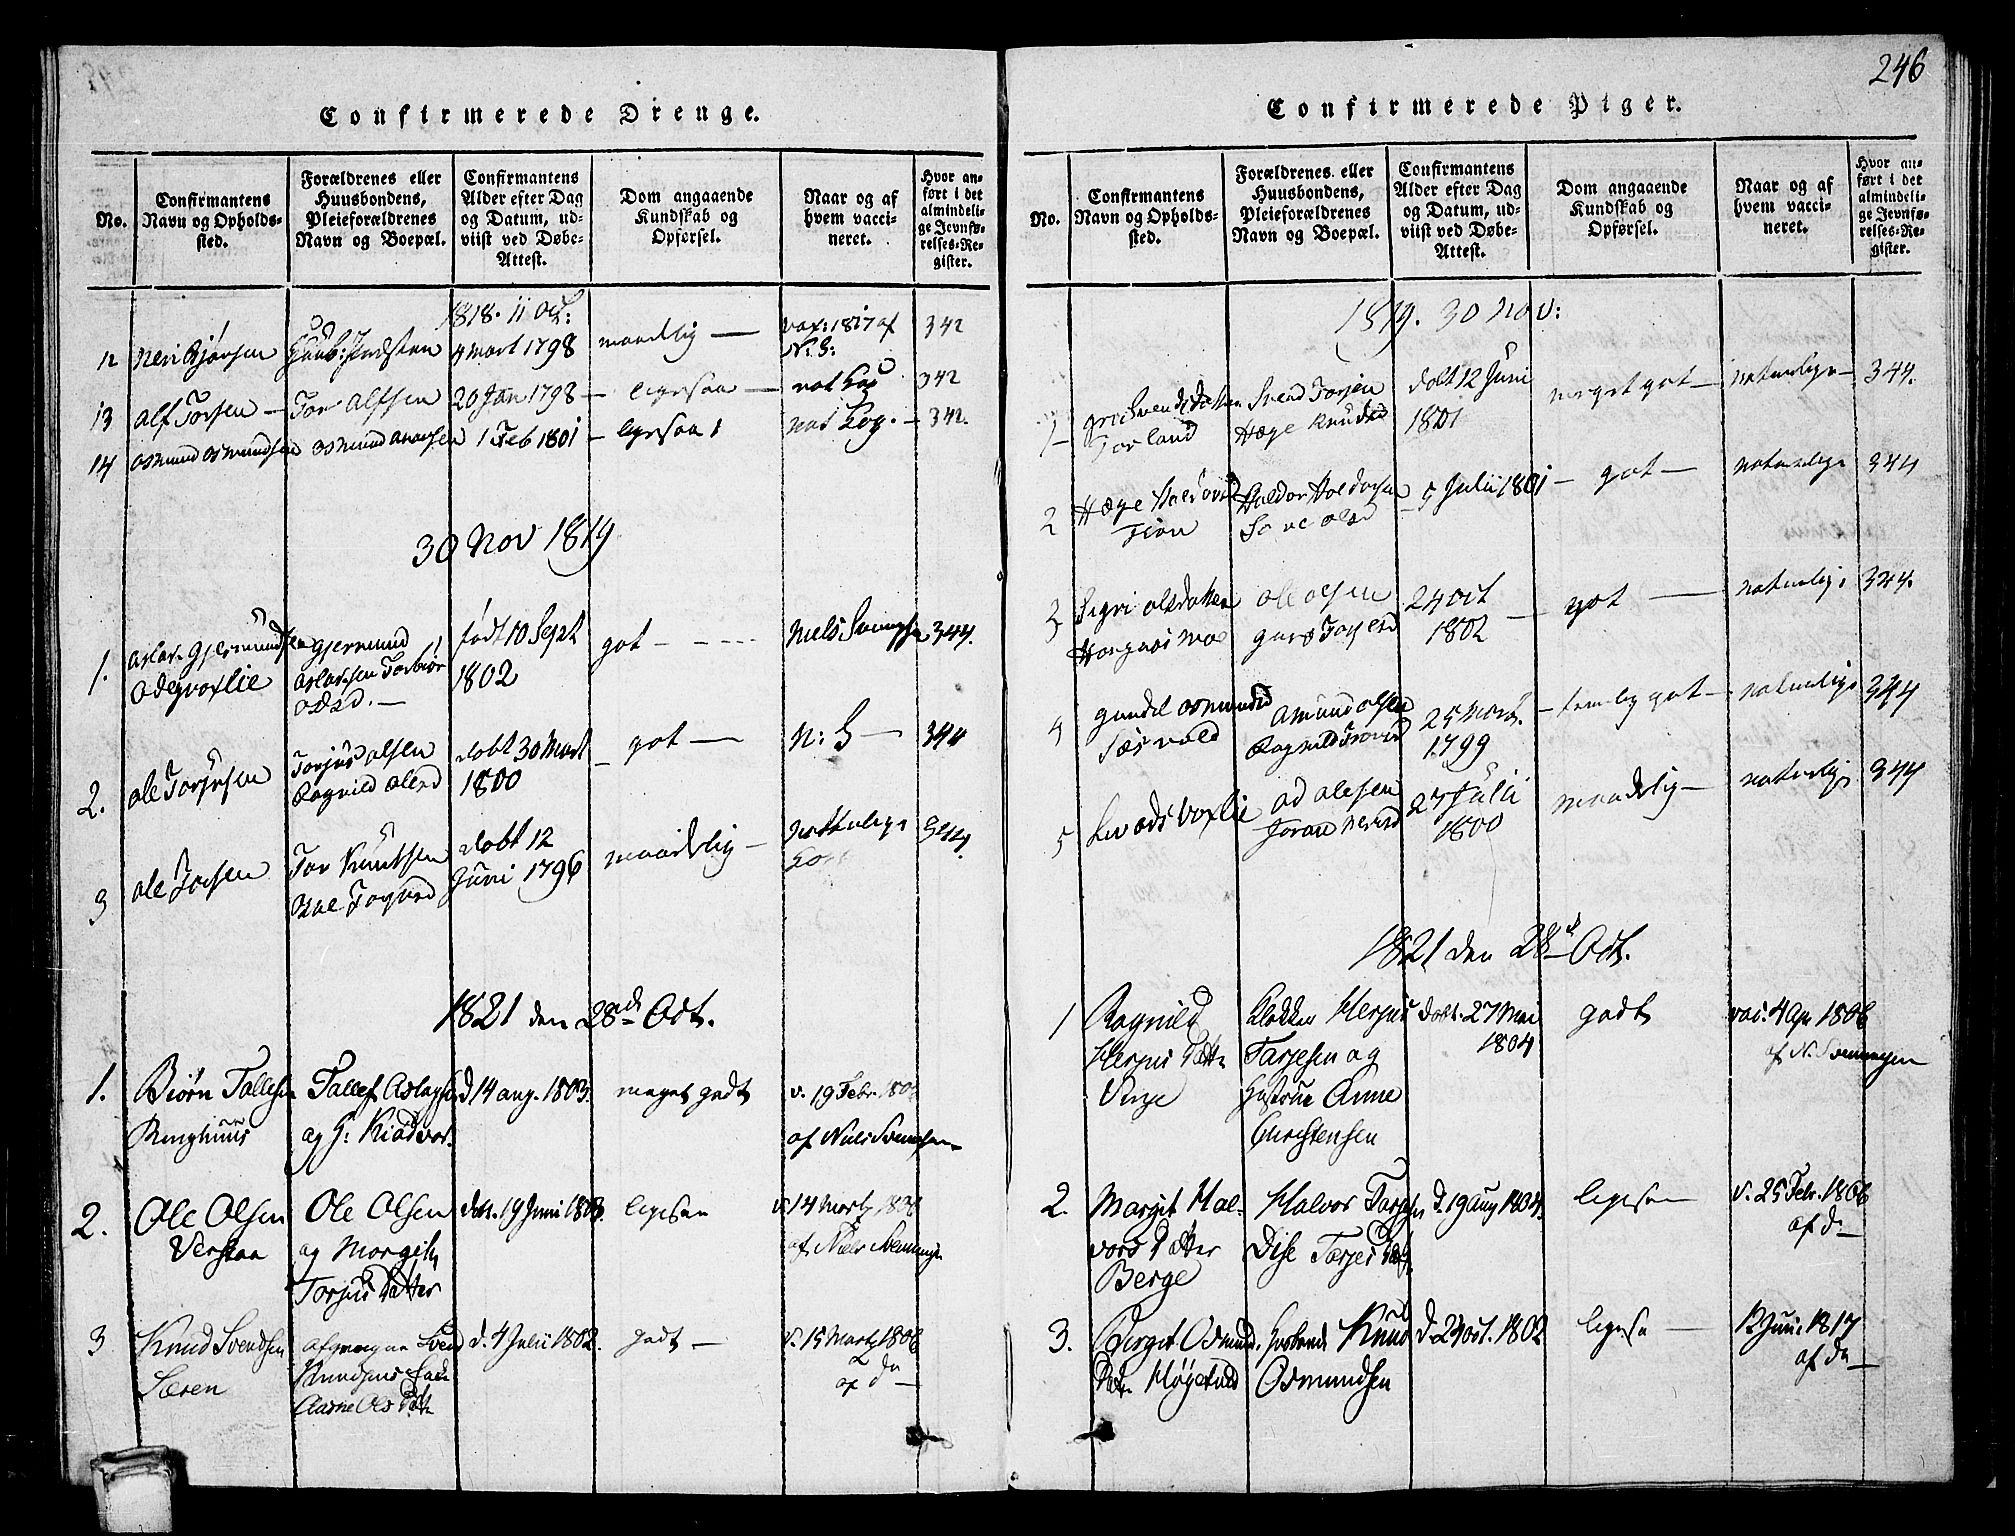 246
Confirmerede Drenge.
No.
Confirmantens
Navn og Opholds-
sted.
Forældrenes eller
Huusbondens,
Pleieforældrenes
Navn og Boepæl.
Confirmantens
Alder efter Dag
og Datum, ud-
viist ved Døbe-
Attest.
Dom angaaende
Kundskab og
Opførsel.
Naar og af
hvem vacci-
neret.
Hvor an-
ført i det
almindeli-
ge Jevnfø-
relses-Re-
gister.
1818. 11 Oct:
12 Neri Bjørsen 4 mart 1798 maadelig — vax: 1817 af N:S: 342
13 Alf Torsen — Tor Alfsen 20 Jan 1798 — ligesaa — nat Kop 342
14 Osmund Osmundsen 1 Feb 1801 — ligesaa nat Kop. — 342.
30 Nov 1819
1. Aslak Gjermundsen
Gjermund
Aslaksen
født 10 Sept
1802
got —
Niels
344.
2. Ole Torjusen
Torjus Olsen
Ragnild Olesd
dobt 30 Mart
1800
— got —
N: S —
344
3 Ole Torsen
Tor Knutsen
dobt 12
Juni 1796
maadelig —
344.
1821 den 28de Oct.
1. Biørn Tallefsen
Tallef Aslagsen
og G:
d 14 aug. 1803.
meget godt
v. 19 Febr. 1806
af Niels Svennsen
2. Ole Olsen
Verstaa
Ole Olsen
og Morgith
Torjus Datter
døb. 19 Juni 1803.
ligesaa
v 14 Martz 1806
af Niels
3 Knud Svendsen
Særen
Svend
Knudsens
Aasne Ols Dat
d. 4 Julii 1802.
godt —
v. 15 Martz 1806
af do —
Confirmerede Piger.
No.
Confirmantens
Navn og Opholds-
sted.
Forældrenes eller
Huusbondens,
Pleieforældrenes
Navn og Boepæl.
Confirmantens
Alder efter Dag
og Datum, ud-
viist ved Døbe-
Attest.
Dom angaaende
Kundskab og
Opførsel.
Naar og af
hvem vacci-
neret.
Hvor an-
ført i det
almindeli-
ge Jevnfø-
relses-Re-
gister.
1819. 30 Nov:
1
Svend Torjsen
Hæge Knudsd
dobt 12 Juni
1801
meget got —
naturlige —
344.
2 Hæge
Haldor Haldorsen
— 5 Julii 1801
— got —
naturlige
344
3 Sigri Olsdatter
Ole Olsen
24 Oct
1802
— got —
naturlige
344.
4 Gundel Osmundsd
Amund Olsen
25 Nov.
1799
— temelig got —
naturlige
344
5 Liv Odsd Voxlie
Od Olesen
27 Julii
1800
maadelig —
naturlige
344
1821 den 28de Oct.
1 Ragnild
Herjus Datter
Klokker Herjus
Tarjesen og
Hustrue Anne
Christensen
døbt. 27 Mai
1804
godt
vac: 4 Apr 1806
af N. Svennsen
2. Margit Hal-
vors Datter
Berge
Halvor Tarjesen
Dise Tarjes Dat.
d. 19 Aug 1804.
ligesaa
v. 25 Febr. 1806
af do —
3. Birget Osmund.
Datr
Knud
Osmundsen
d. 24 oct. 1802
ligesa —
12 Juni 1817
af do —